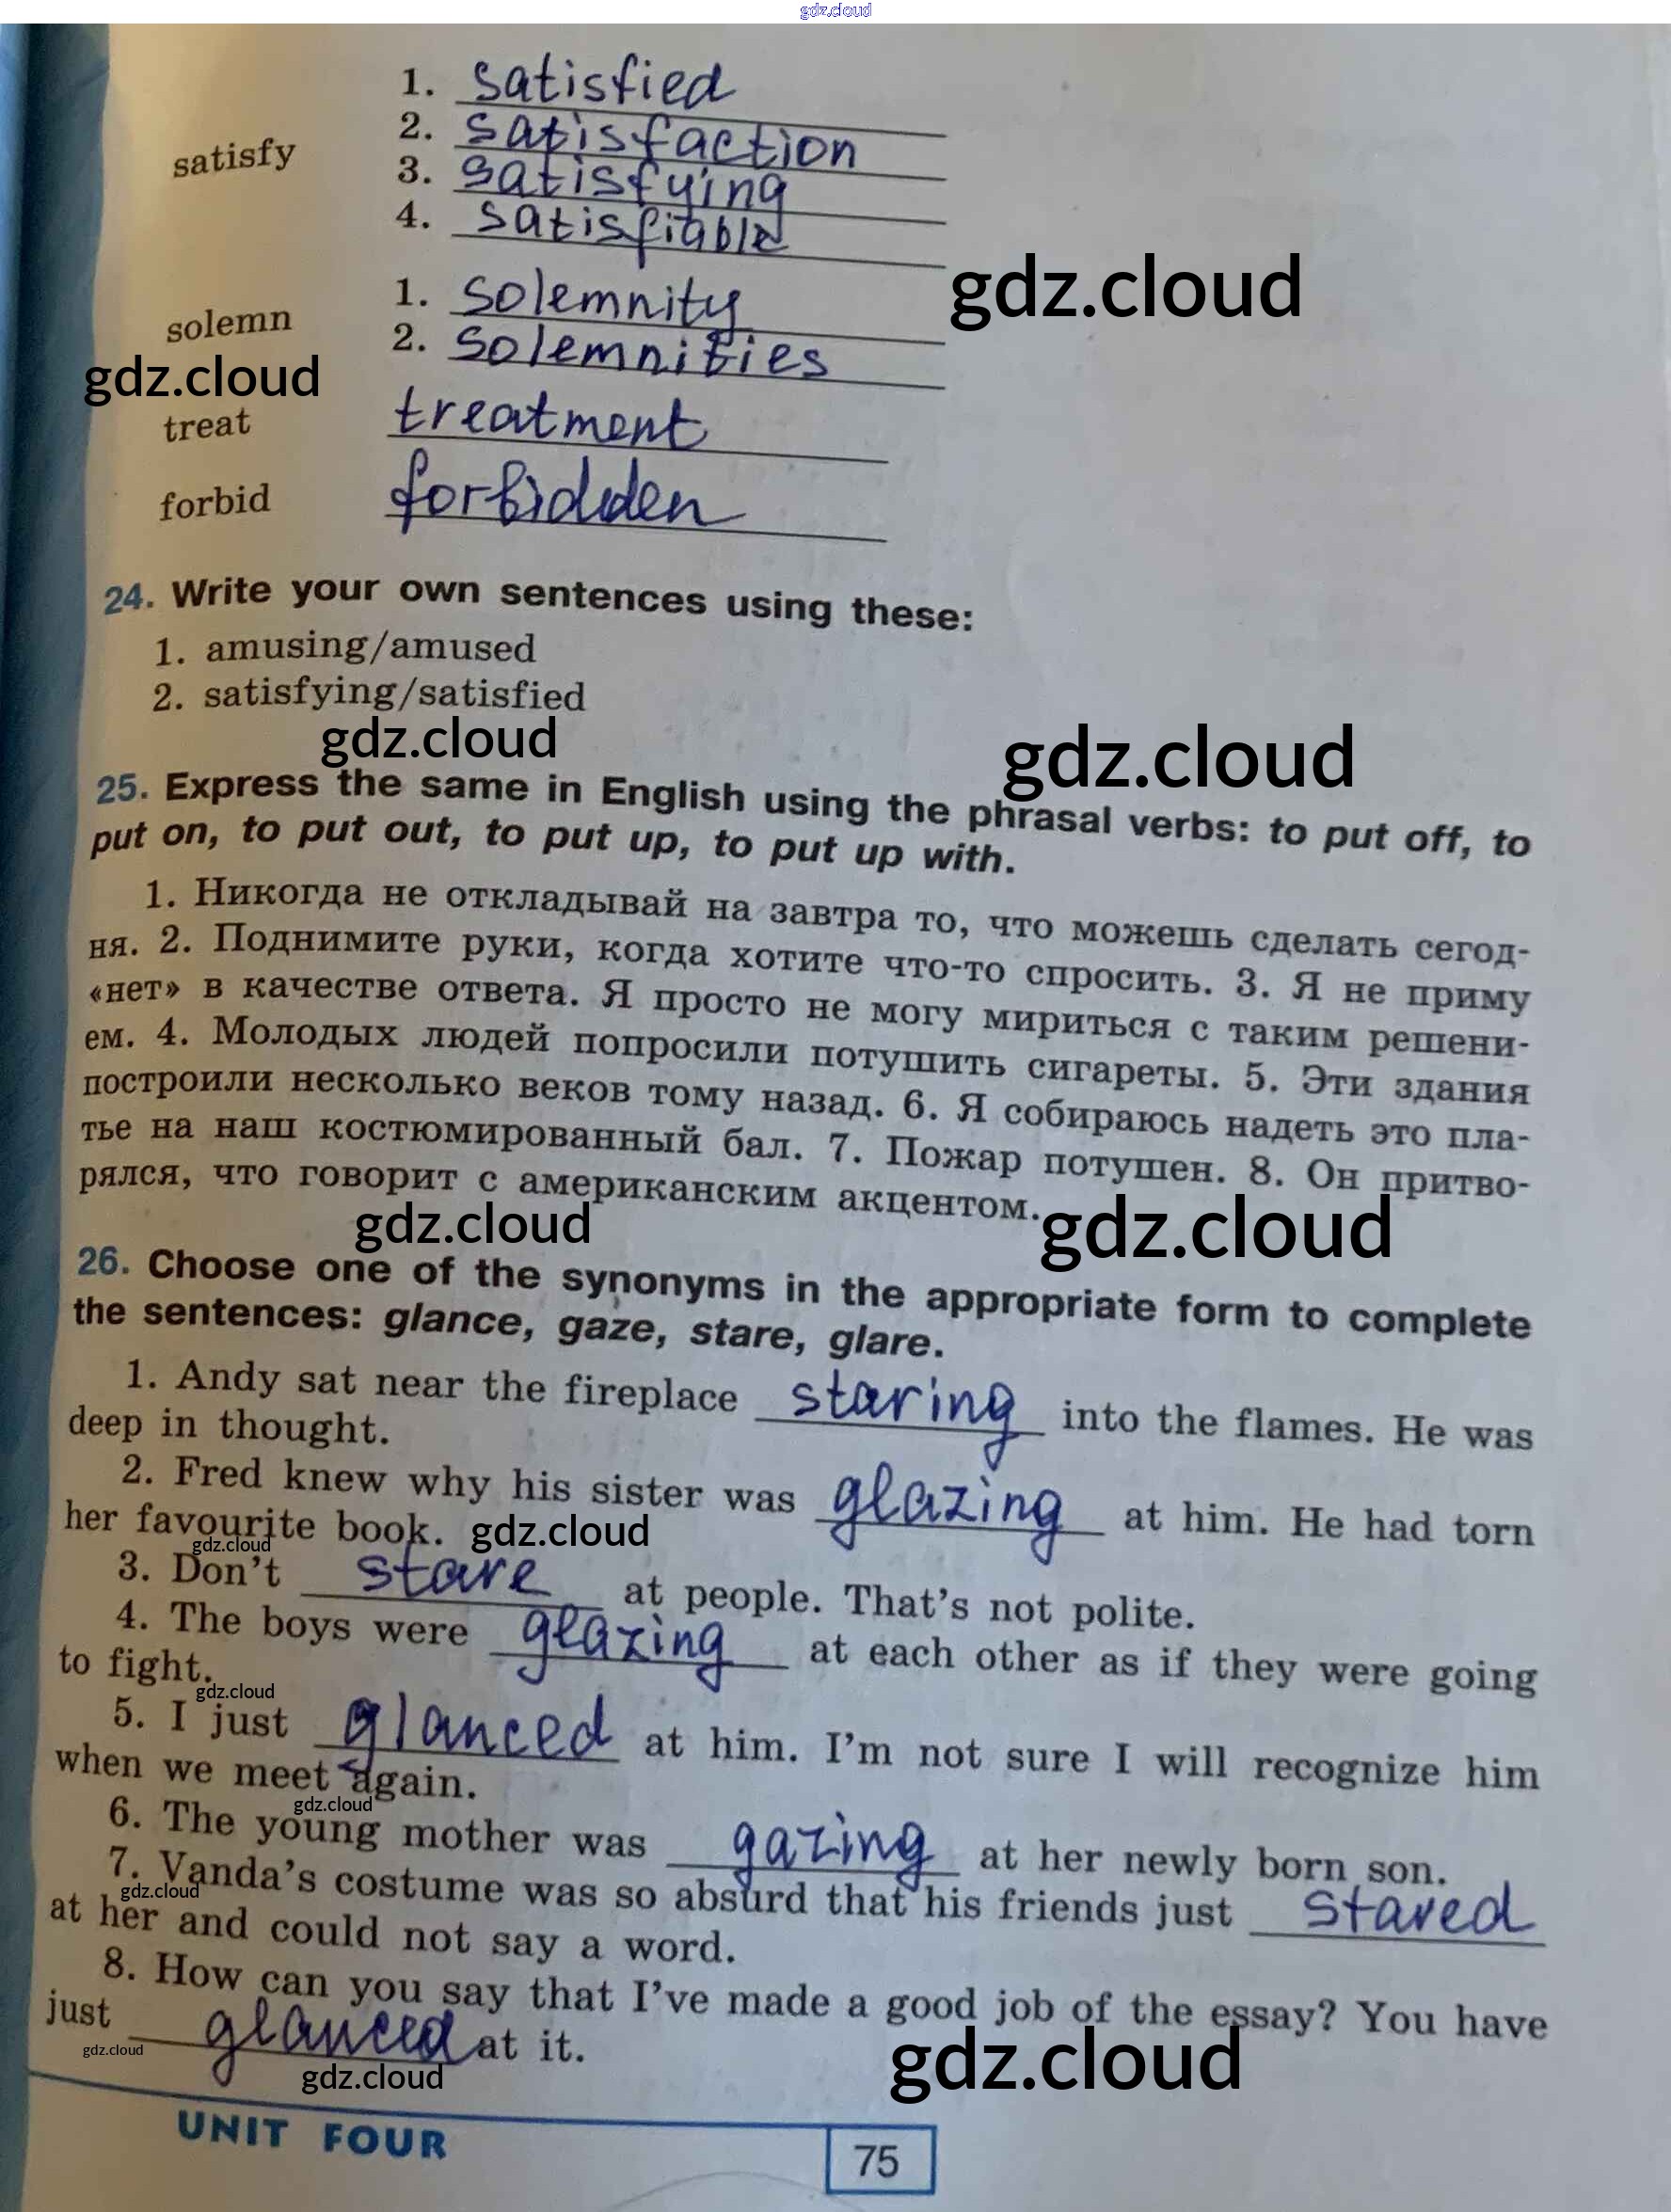 gdz.cloud
1. satisfied
2. satisfaction
satisfy
3. satisfying
4. satisfiable
gdz.cloud
1. solemnity
solemn
2. solemnities
gdz.cloud
treat treatment
forbid forbidden
24. Write your own sentences using these:
1. amusing/amused
2. satisfying/satisfied
gdz.cloud gdz.cloud
25. Express the same in English using the phrasal verbs: to put off, to
put on, to put out, to put up, to put up with.
1. Никогда не откладывай на завтра то, что можешь сделать сегод-
ня. 2. Поднимите руки, когда хотите что-то спросить. 3. Я не приму
«нет» в качестве ответа. Я просто не могу мириться с таким решени-
ем. 4. Молодых людей попросили потушить сигареты. 5. Эти здания
построили несколько веков тому назад. 6. Я собираюсь надеть это пла-
тье на наш костюмированный бал. 7. Пожар потушен. 8. Он притво-
рялся, что говорит с американским акцентом.
gdz.cloud gdz.cloud
26. Choose one of the synonyms in the appropriate form to complete
the sentences: glance, gaze, stare, glare.
1. Andy sat near the fireplace staring into the flames. He was
deep in thought.
2. Fred knew why his sister was glazing at him. He had torn
her favourite book. gdz.cloud
gdz.cloud
3. Don't stare at people. That's not polite.
4. The boys were glazing at each other as if they were going
to fight.
gdz.cloud
5. I just glanced at him. I'm not sure I will recognize him
when we meet again.
gdz.cloud
6. The young mother was gazing at her newly born son.
7. Vanda's costume was so absurd that his friends just stared
gdz.cloud
at her and could not say a word.
8. How can you say that I've made a good job of the essay? You have
just glanced at it.
gdz.cloud
gdz.cloud
gdz.cloud
UNIT FOUR
75